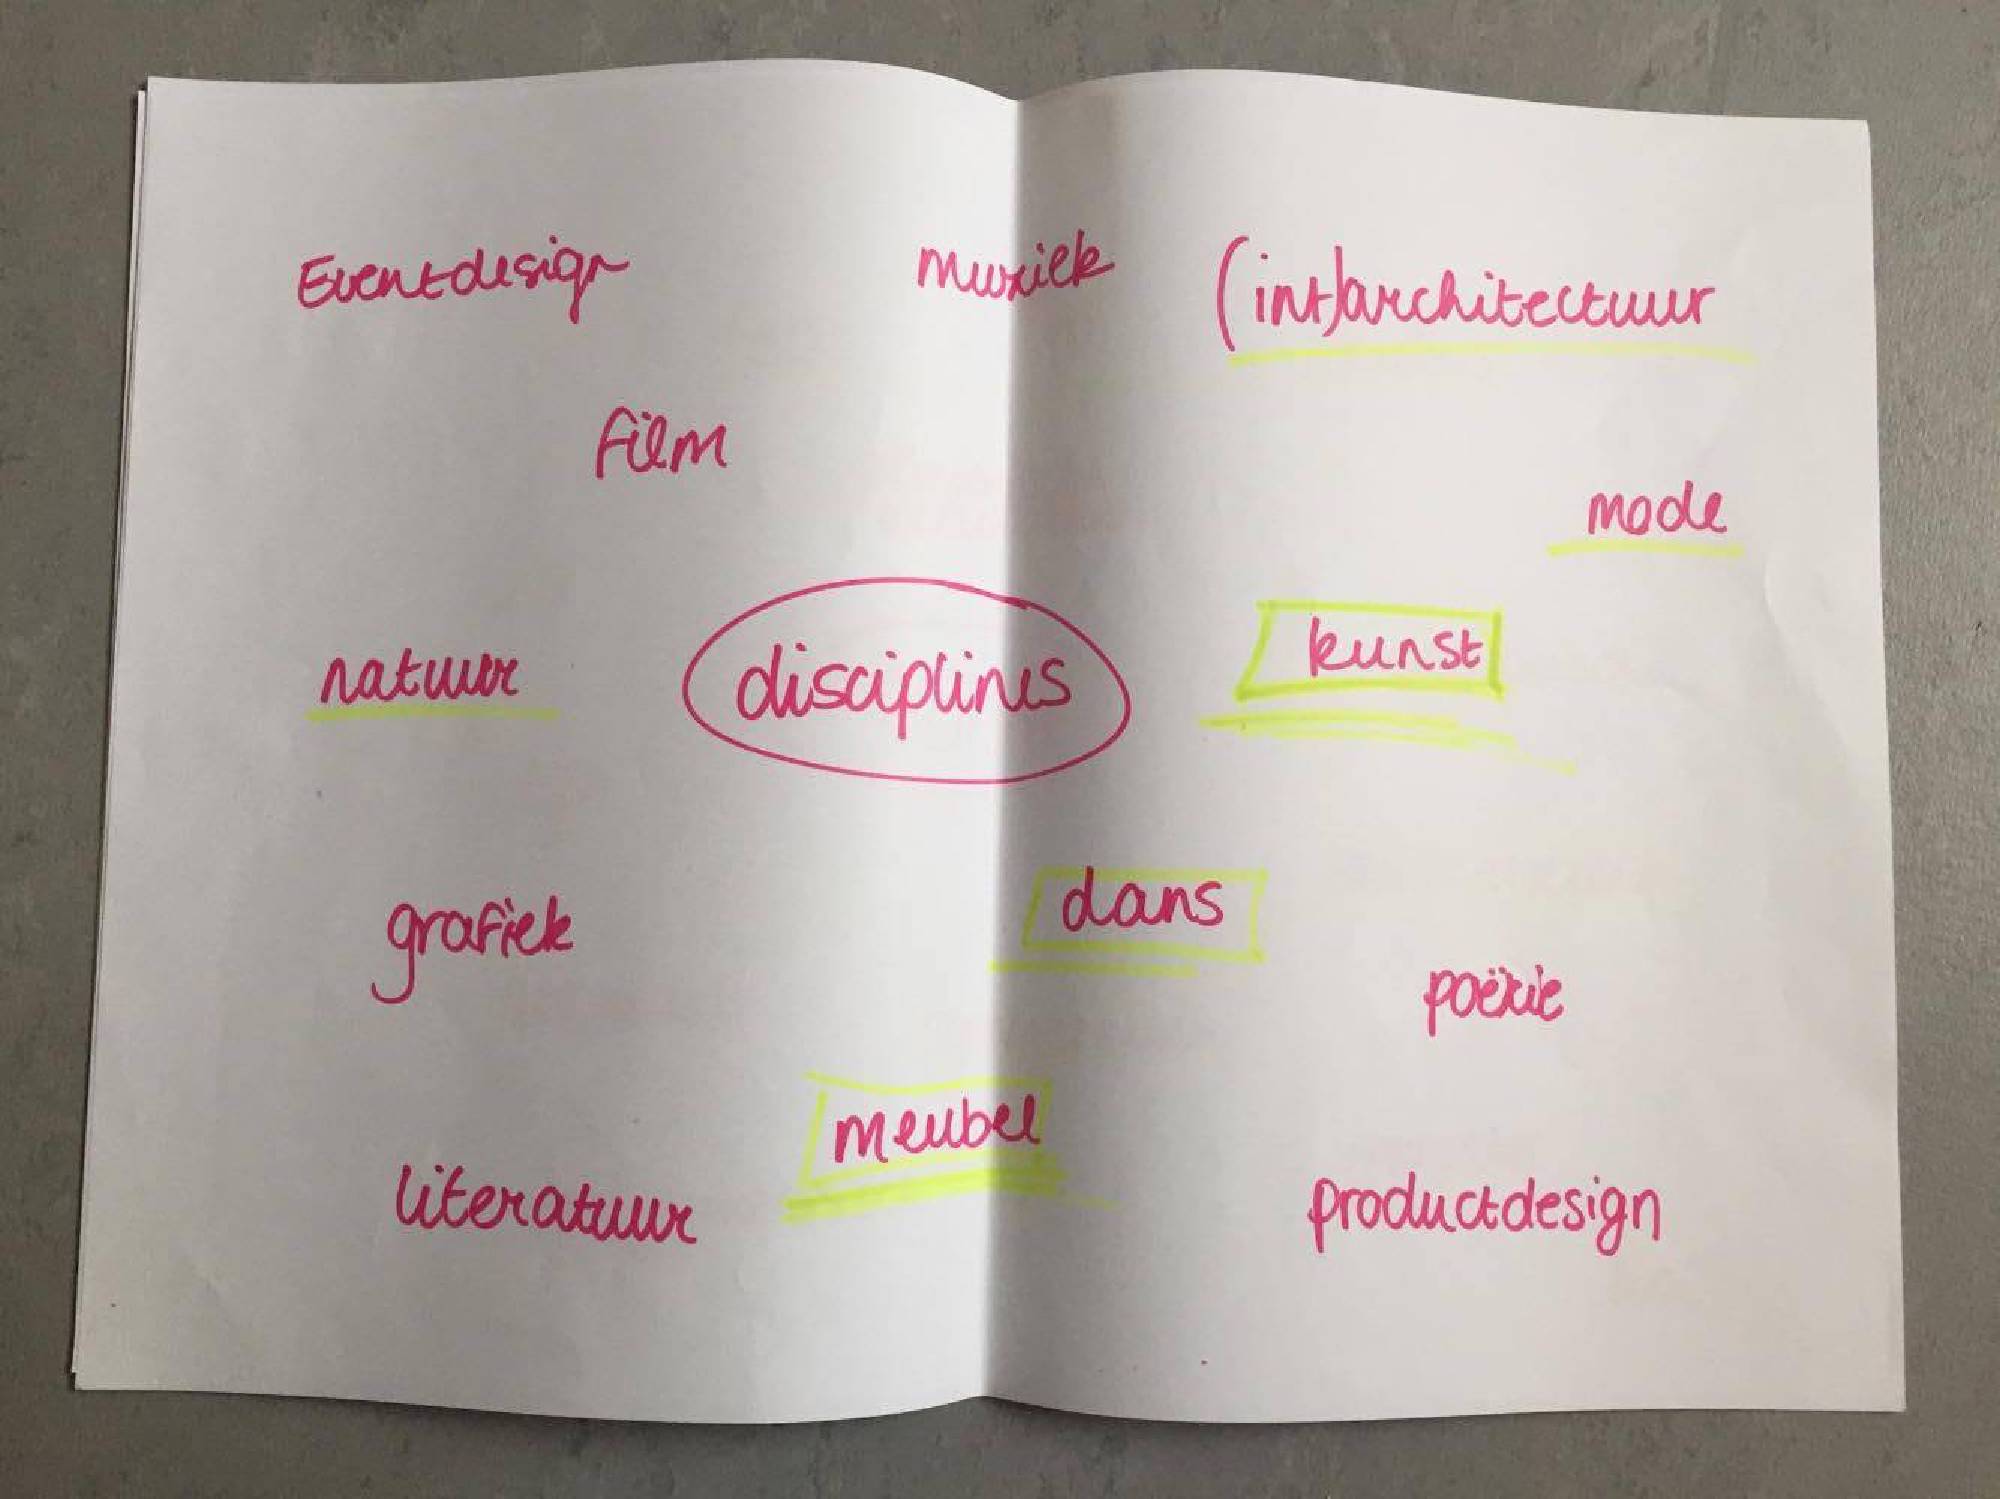 Eventdesign
muziek
(int)architectuur
film
mode
natuur
disciplines
kunst
grafiek
dans
poëzie
meubel
literatuur
productdesign